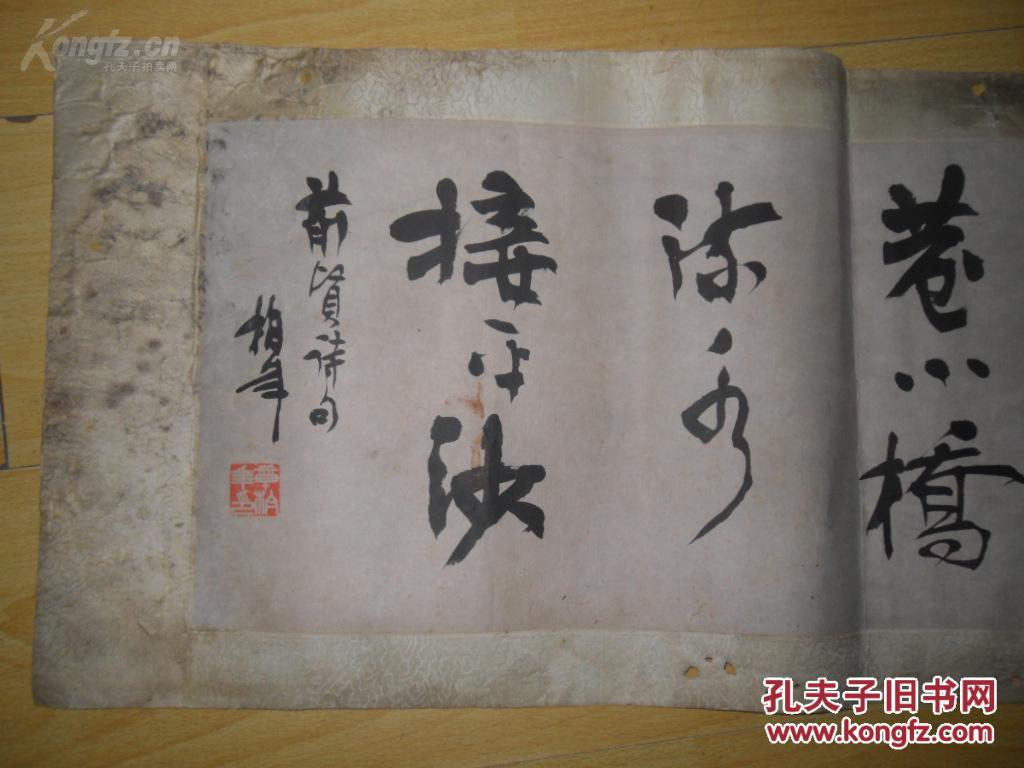 巷小橋
流水
接平沙
前賢詩句
柏年
Kongfz.cn
孔夫子拍卖网
孔夫子旧书网
www.kongfz.com